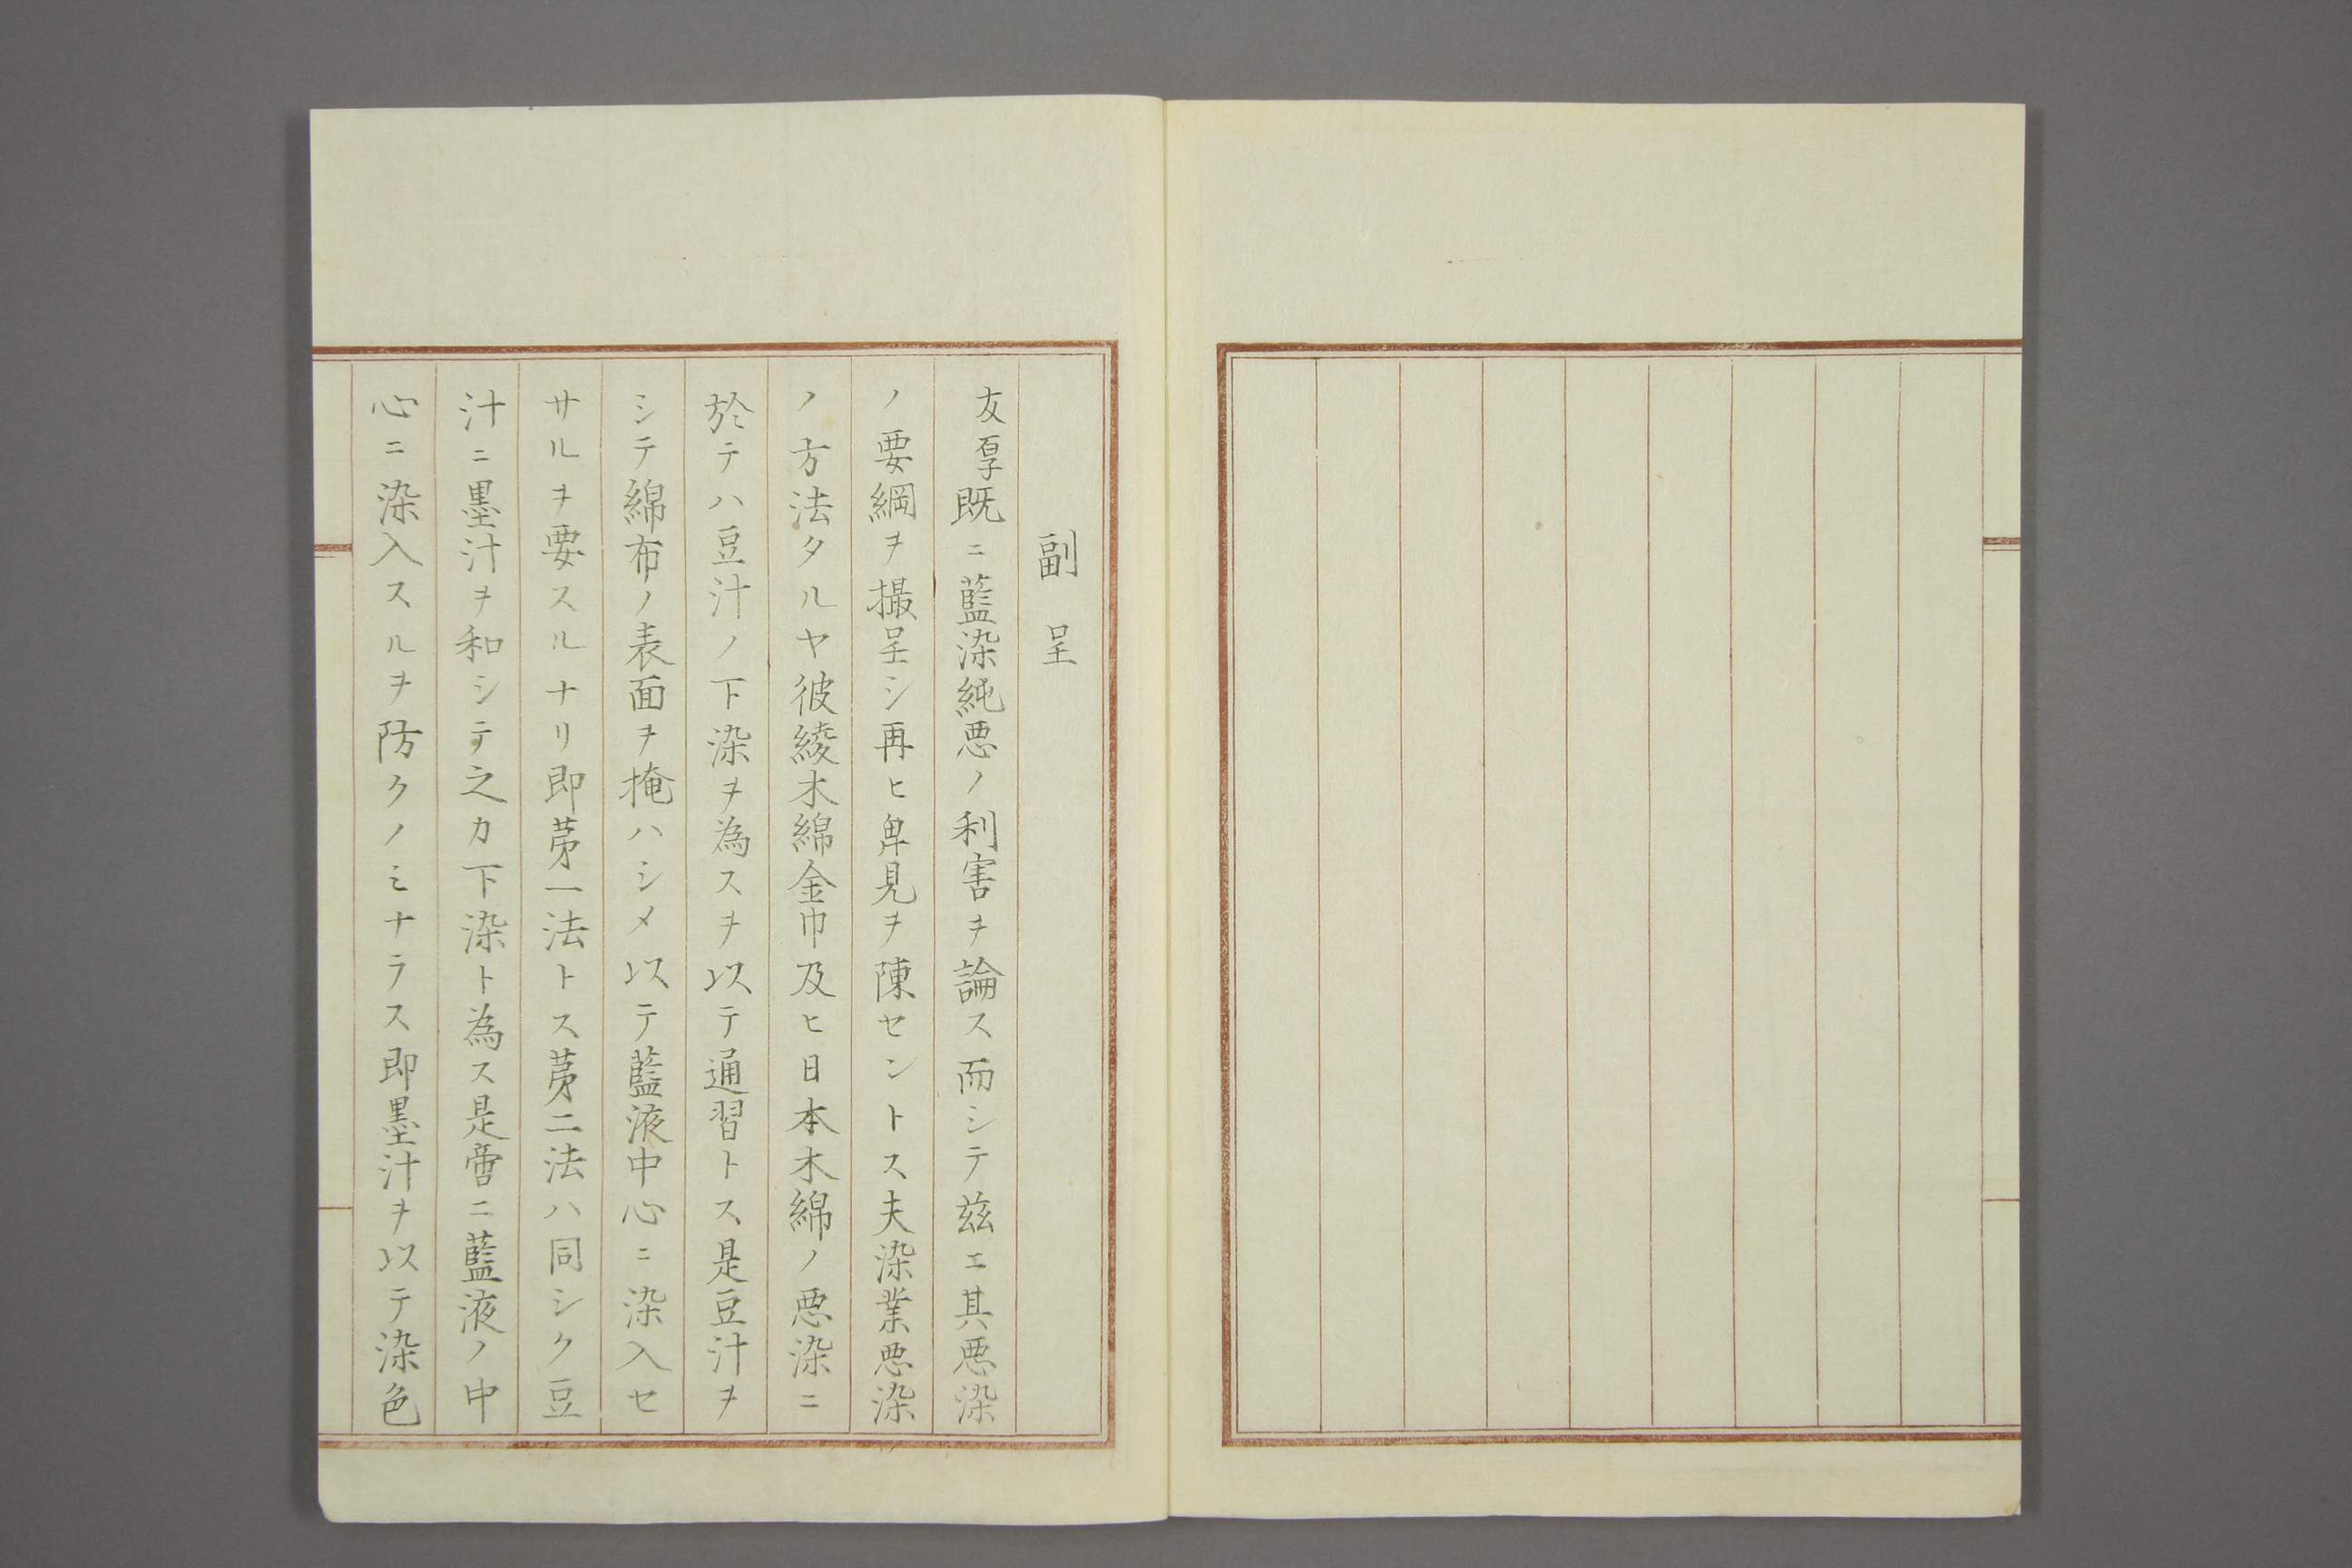 副呈
友厚既ニ藍染純悪ノ利害ヲ論ス而シテ茲エ其悪染
ノ要綱ヲ撮呈シ再ヒ卑見ヲ陳セントス夫染業悪染
ノ方法タルヤ彼綾木綿金巾及ヒ日本木綿ノ悪染ニ
於テハ豆汁ノ下染ヲ為スヲ以テ通習トス是豆汁ヲ
シテ綿布ノ表面ヲ掩ハシメ以テ藍液中心ニ染入セ
サルヲ要スルナリ即第一法トス第二法ハ同シク豆
汁ニ墨汁ヲ和シテ之カ下染ト為ス是啻ニ藍液ノ中
心ニ染入スルヲ防クノミナラス即墨汁ヲ以テ染色